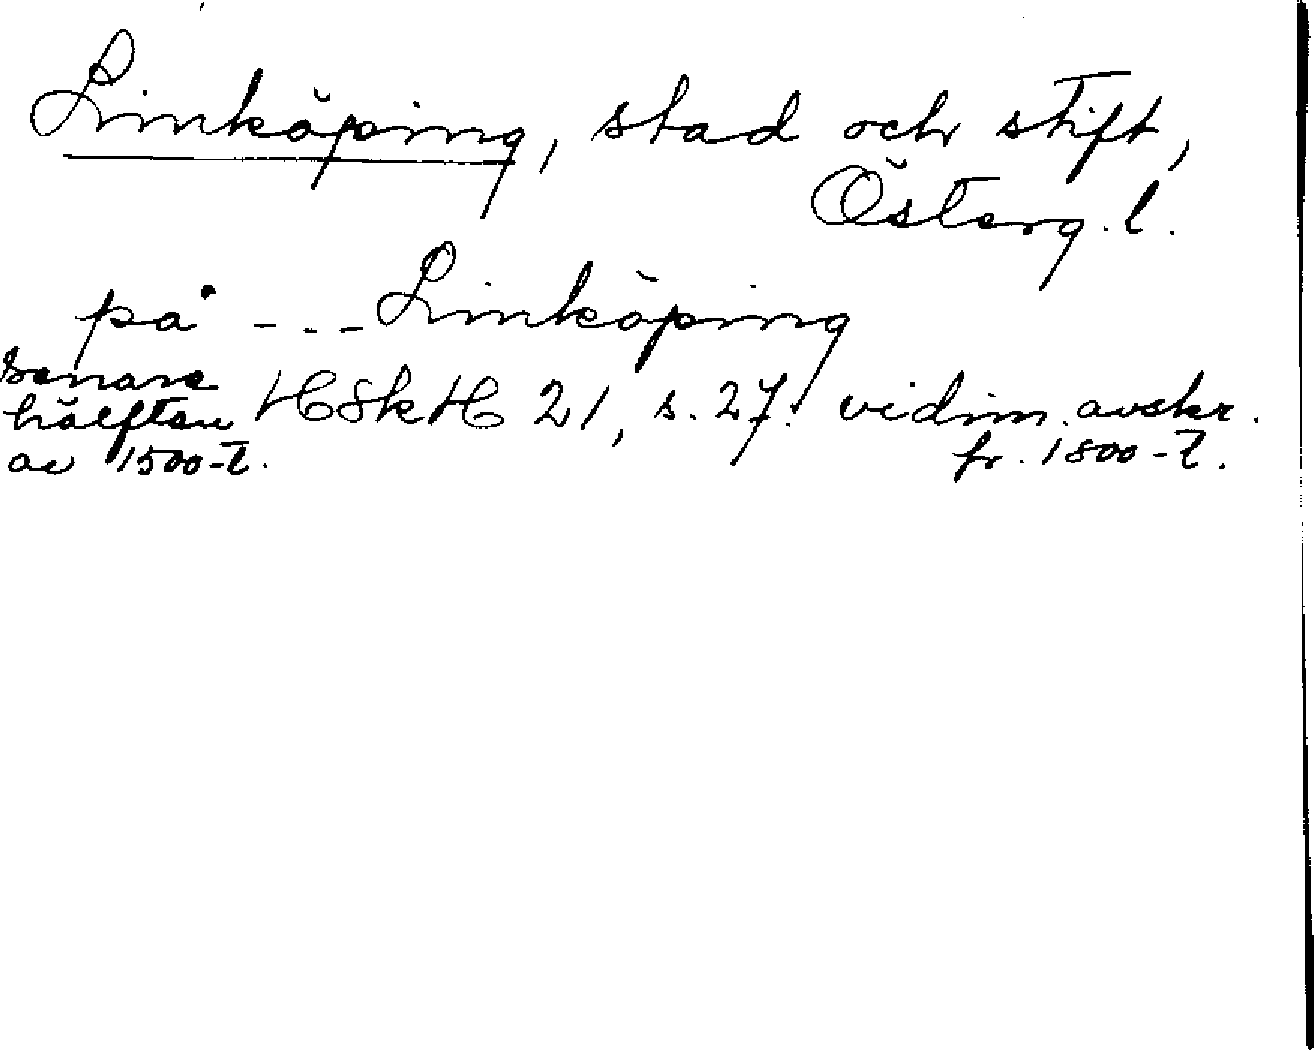 Linköping, stad och stift,
Österg. l.
på --- Linköping
senare
hälften HSkH 21, s. 27. vidim. avskr.
av 1500-t. fr. 1800-t.